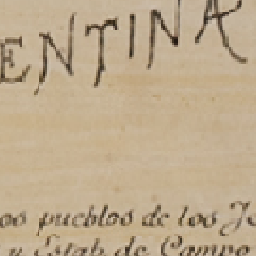 ENTINA
os pueblos de los Je
y Estab. de Campo